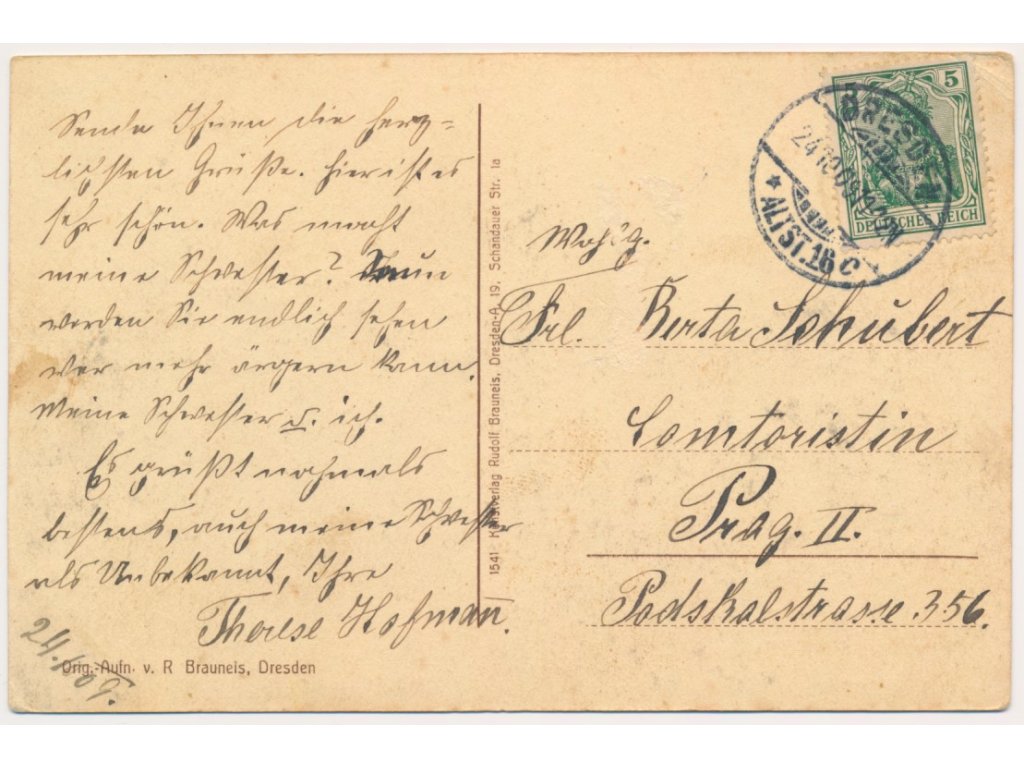 Sende Ihnen die herz=
lichsten Grüße. Hier ist es
sehr schön. Was macht
meine Schwester?
werden Sie endlich sehen
wer mehr ärgern kann.
Meine Schwester u. ich.
Es grüßt nochmals
bestens, auch meine Schwester
als Unbekannt, Ihre
Therese Hofmann.
Orig.-Aufn. v. R Brauneis, Dresden
1541 Kunstverlag Rudolf Brauneis, Dresden-A. 19, Schandauer Str. 1a
5
DEUTSCHES REICH
DRESDEN
* ALTST. 16 c
Frl. Berta Schubert
Comtoristin
Prag. II.
Podskalstrasse 356.